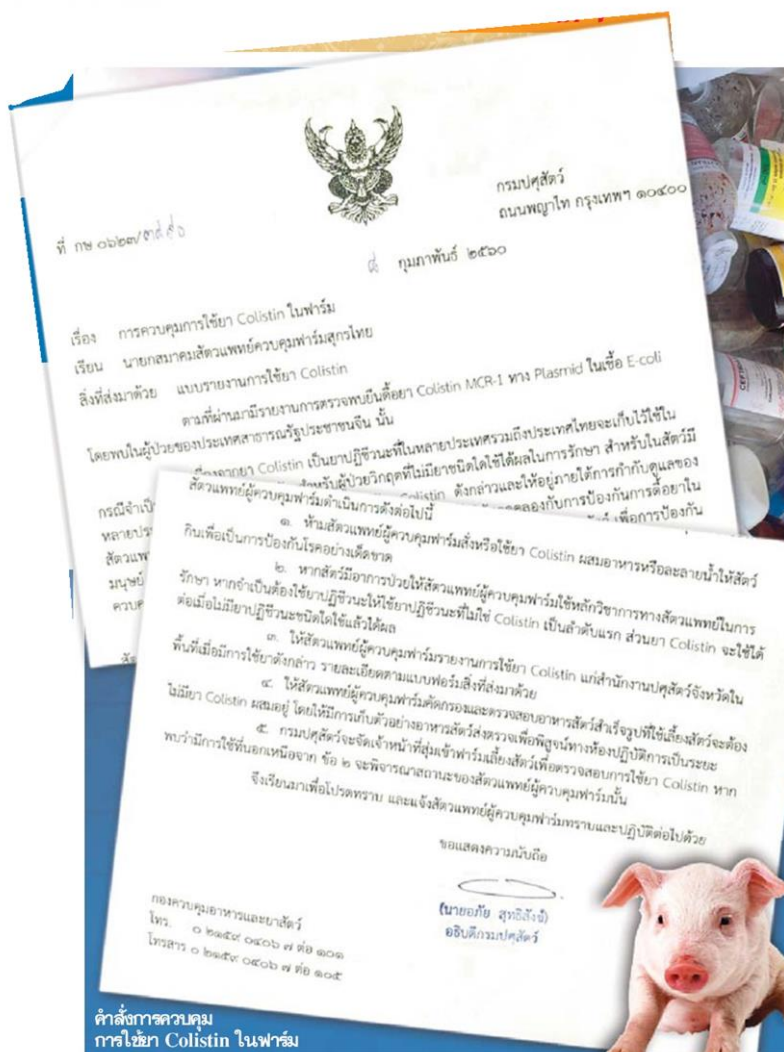 กรมปศุสัตว์
ถนนพญาไท กรุงเทพฯ ๑๐๔๐๐
ที่ กษ ๐๖๒๓/
กุมภาพันธ์ ๒๕๖๐
เรื่อง การควบคุมการใช้ยา Colistin ในฟาร์ม
เรียน นายกสมาคมสัตวแพทย์ควบคุมฟาร์มสุกรไทย
สิ่งที่ส่งมาด้วย แบบรายงานการใช้ยา Colistin
ตามที่ผ่านมามีรายงานการตรวจพบยีนดื้อยา Colistin MCR-1 ทาง Plasmid ในเชื้อ E-coli
โดยพบในผู้ป่วยของประเทศสาธารณรัฐประชาชนจีน นั้น
ยา Colistin เป็นยาปฏิชีวนะที่ในหลายประเทศรวมถึงประเทศไทยจะเก็บไว้ใช้ใน
กรณีจำเป็น สำหรับผู้ป่วยวิกฤตที่ไม่มียาชนิดใดใช้ได้ผลในการรักษา สำหรับในสัตว์มี
หลายประ Colistin ดังกล่าวและให้อยู่ภายใต้การกำกับดูแลของ
สัตวแพ คล้องกับการป้องกันการดื้อยาใน
มนุษย์ เพื่อการป้องกัน
ควบค
สัตวแพทย์ผู้ควบคุมฟาร์มดำเนินการดังต่อไปนี้
๑. ห้ามสัตวแพทย์ผู้ควบคุมฟาร์มสั่งหรือใช้ยา Colistin ผสมอาหารหรือละลายน้ำให้สัตว์
กินเพื่อเป็นการป้องกันโรคอย่างเด็ดขาด
๒. หากสัตว์มีอาการป่วยให้สัตวแพทย์ผู้ควบคุมฟาร์มใช้หลักวิชาการทางสัตวแพทย์ในการ
รักษา หากจำเป็นต้องใช้ยาปฏิชีวนะให้ใช้ยาปฏิชีวนะที่ไม่ใช่ Colistin เป็นลำดับแรก ส่วนยา Colistin จะใช้ได้
ต่อเมื่อไม่มียาปฏิชีวนะชนิดใดใช้แล้วได้ผล
๓. ให้สัตวแพทย์ผู้ควบคุมฟาร์มรายงานการใช้ยา Colistin แก่สำนักงานปศุสัตว์จังหวัดใน
พื้นที่เมื่อมีการใช้ยาดังกล่าว รายละเอียดตามแบบฟอร์มสิ่งที่ส่งมาด้วย
๔. ให้สัตวแพทย์ผู้ควบคุมฟาร์มคัดกรองและตรวจสอบอาหารสัตว์สำเร็จรูปที่ใช้เลี้ยงสัตว์จะต้อง
ไม่มียา Colistin ผสมอยู่ โดยให้มีการเก็บตัวอย่างอาหารสัตว์ส่งตรวจเพื่อพิสูจน์ทางห้องปฏิบัติการเป็นระยะ
๕. กรมปศุสัตว์จะจัดเจ้าหน้าที่สุ่มเข้าฟาร์มเลี้ยงสัตว์เพื่อตรวจสอบการใช้ยา Colistin หาก
พบว่ามีการใช้ที่นอกเหนือจาก ข้อ ๒ จะพิจารณาสถานะของสัตวแพทย์ผู้ควบคุมฟาร์มนั้น
จึงเรียนมาเพื่อโปรดทราบ และแจ้งสัตวแพทย์ผู้ควบคุมฟาร์มทราบและปฏิบัติต่อไปด้วย
ขอแสดงความนับถือ
(นายอภัย สุทธิสังข์)
อธิบดีกรมปศุสัตว์
กองควบคุมอาหารและยาสัตว์
โทร. ๐ ๒๑๕๙ ๐๔๐๖ ๗ ต่อ ๑๐๑
โทรสาร ๐ ๒๑๕๙ ๐๔๐๖ ๗ ต่อ ๑๐๕
คำสั่งการควบคุม
การใช้ยา Colistin ในฟาร์ม